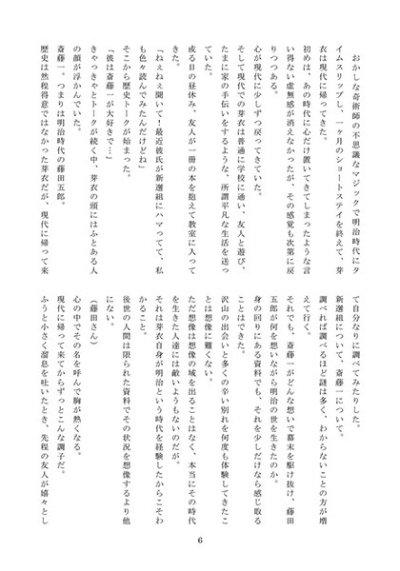 おかしな奇術師の不思議なマジックで明治時代にタ
イムスリップし、一ヶ月のショートステイを終えて、芽
衣は現代に帰ってきた。
初めは、あの時代に心だけ置いてきてしまったような言
い得ない虚無感が消えなかったが、その感覚も次第に戻
りつつある。
心が現代に少しずつ戻ってきていた。
そして現代での芽衣は普通に学校に通い、友人と遊び、
たまに家の手伝いをするような、所謂平凡な生活を送っ
ていた。
或る日の昼休み、友人が一冊の本を抱えて教室に入って
きた。
「ねぇねぇ聞いて!最近彼氏が新選組にハマってて、私
も色々読んでみたんだけどね」
そこから歴史トークが始まった。
「彼は斎藤一が大好きで…」
きゃっきゃとトークが続く中、芽衣の頭にはふとある人
の顔が浮かんでいた。
斎藤一。つまりは明治時代の藤田五郎。
歴史は然程得意ではなかった芽衣だが、現代に帰って来
て自分なりに調べてみたりした。
新選組について、斎藤一について。
調べれば調べるほど謎は多く、わからないことの方が増
えて行く。
それでも、斎藤一がどんな想いで幕末を駆け抜け、藤田
五郎が何を想いながら明治の世を生きたのか。
身の回りにある資料でも、それを少しだけなら感じ取る
ことはできた。
沢山の出会いと多くの辛い別れを何度も体験してきたこ
とは想像に難くない。
ただ想像は想像の域を出ることはなく、本当にその時代
を生きた人達には敵いようもないのだが。
それは芽衣自身が明治という時代を経験したからこそわ
かること。
後世の人間は限られた資料でその状況を想像するより他
にない。
(藤田さん)
心の中でその名を呼んで胸が熱くなる。
現代に帰って来てからずっとこんな調子だ。
ふうと小さく溜息を吐いたとき、先程の友人が嬉々とし
6